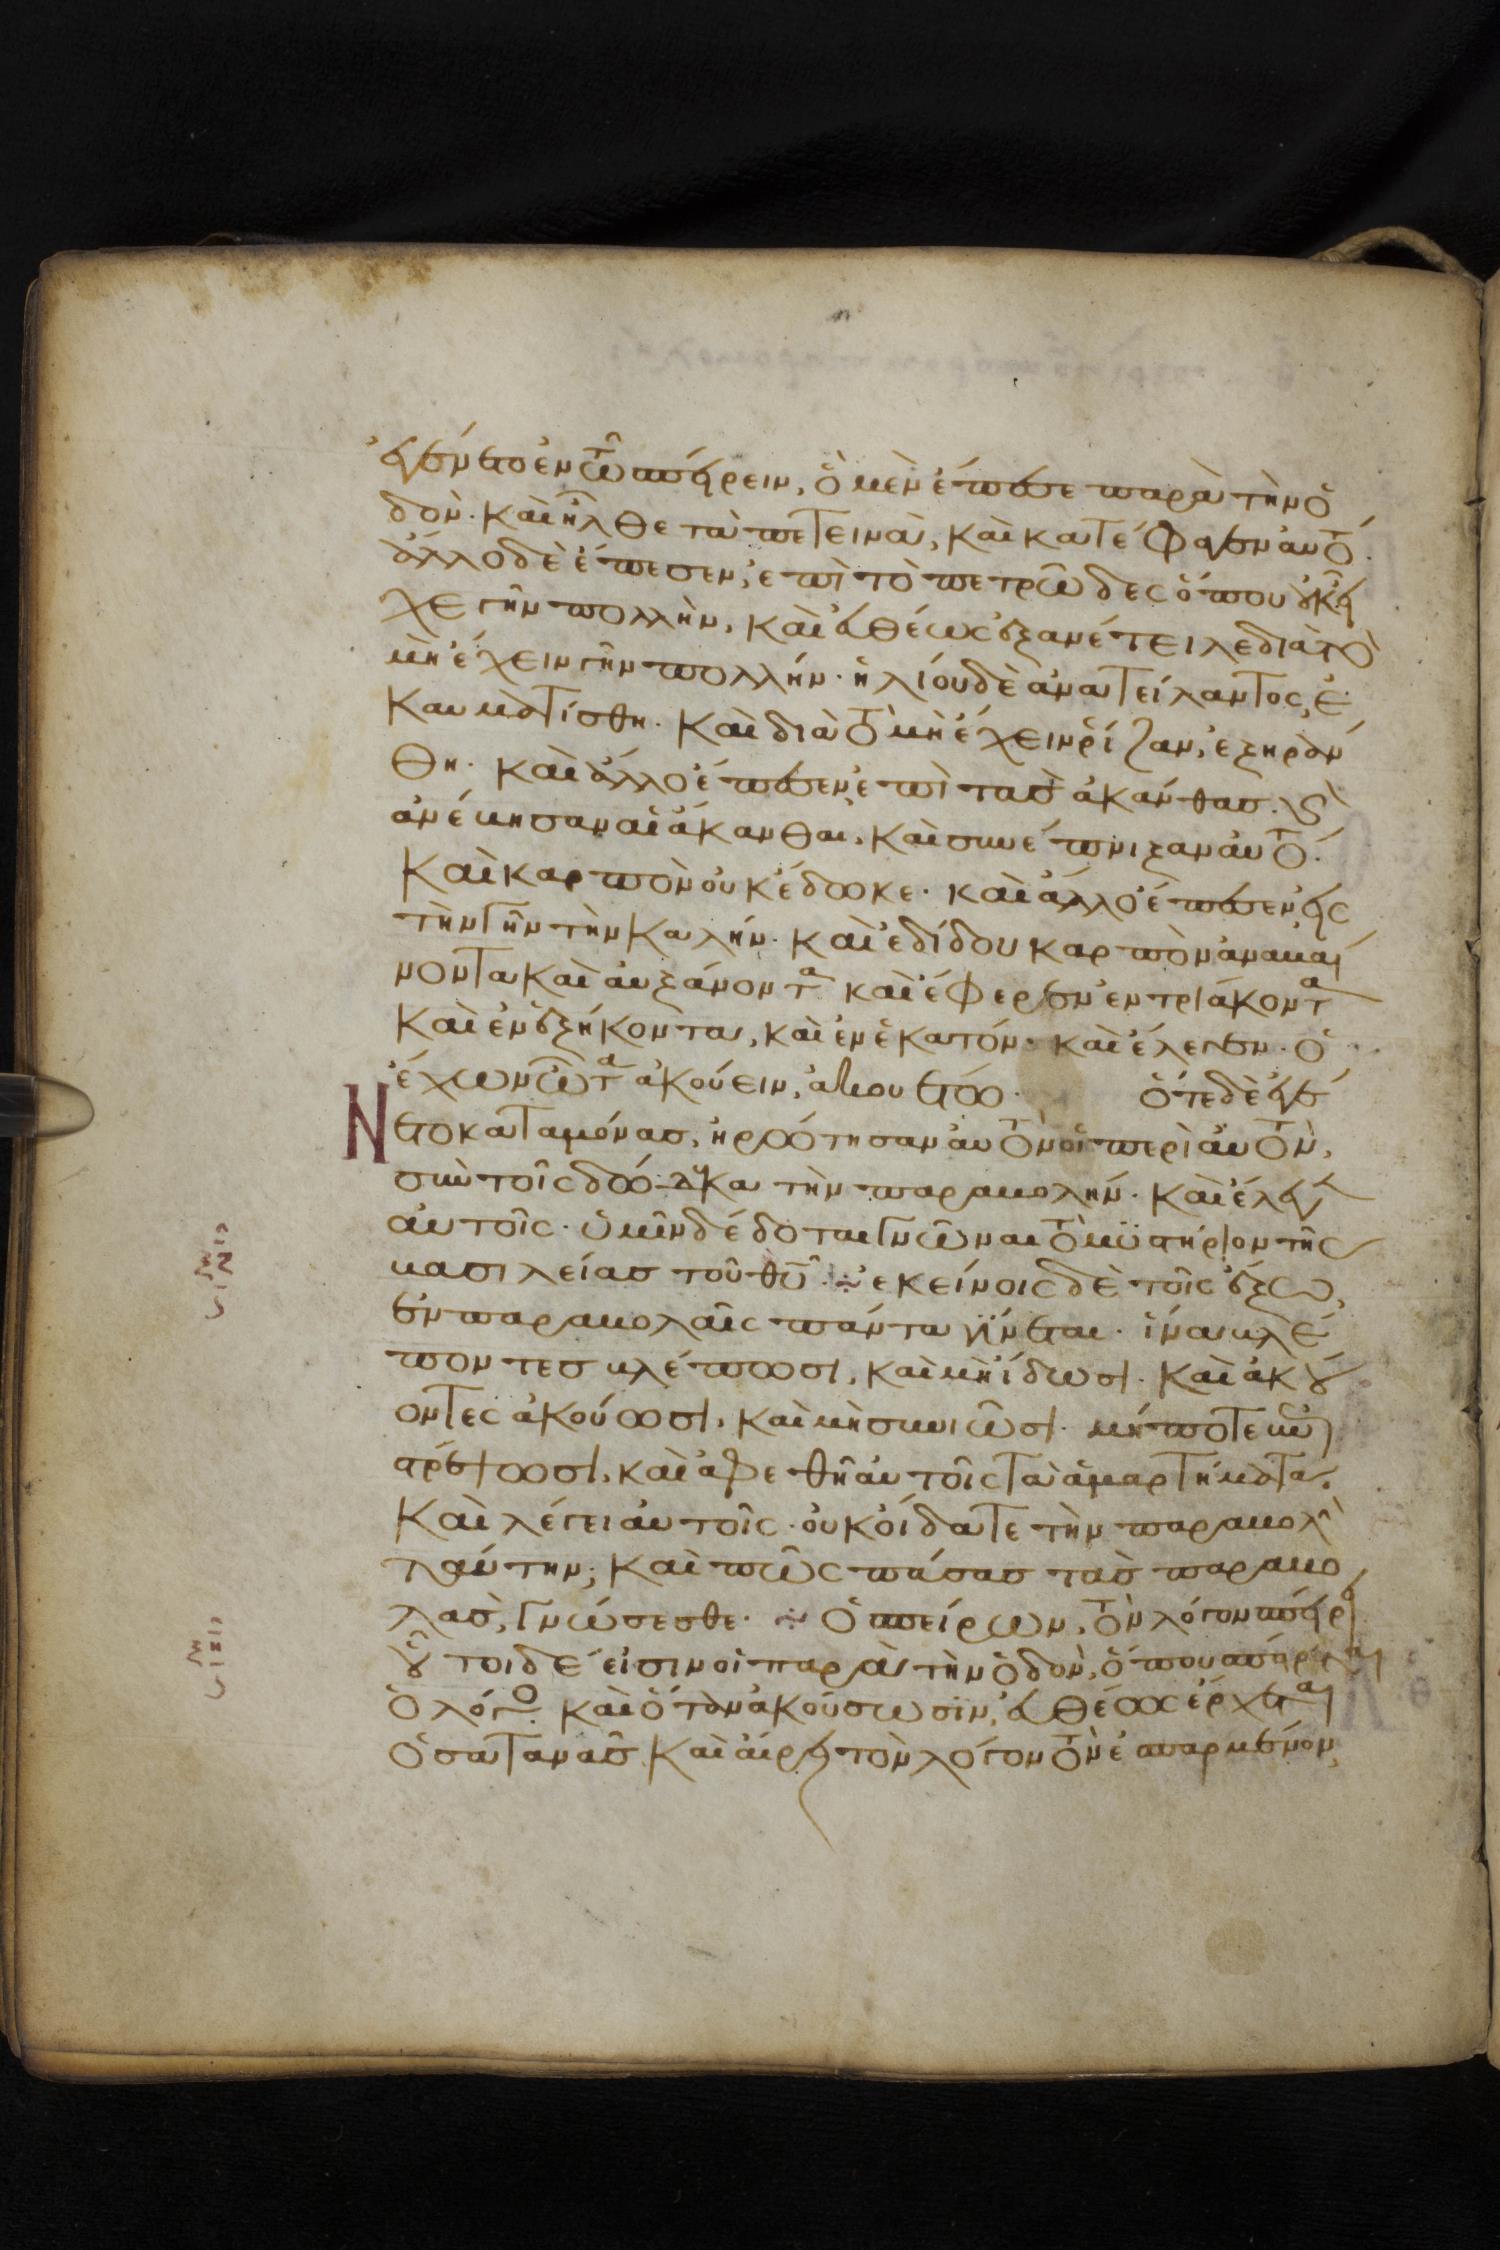 ἐγένετο ἐν τῶ σπείρειν, ὃ μὲν ἔπεσε παρὰ τὴν ὁ
δὸν· καὶ ἦλθε τὰ πετεινὰ, καὶ κατέφαγεν αὐτό·
ἄλλο δὲ ἔπεσεν, ἐπὶ τὸ πετρῶδες ὅπου οὐκ εἶ
χε γῆν πολλὴν, καὶ εὐθέως ἐξανέτειλε διὰ τὸ
μὴ ἔχειν γῆν πολλήν· ἡλίου δὲ ἀνατείλαντος, ἐ
καυματίσθη· καὶ διὰ τὸ μὴ ἔχειν ῥίζαν, ἐξηράν
θη· καὶ ἄλλο ἔπεσεν ἐπὶ τὰς ἀκάνθας· καὶ
ἀνέβησαν αἱ ἄκανθαι, καὶ συνέπνιξαν αὐτό·
καὶ καρπὸν οὐκ ἔδωκε· καὶ ἄλλο ἔπεσεν εἰς
τὴν γῆν τὴν καλήν· καὶ ἐδίδου καρπὸν ἀναβαί
νοντα καὶ αὐξάνοντα καὶ ἔφερεν ἐν τριάκοντα
καὶ ἐν ἑξήκοντα, καὶ ἐν ἑκατόν· καὶ ἔλεγεν· ὁ
ἔχων ὦτα ἀκούειν, ἀκουέτω· ὅτε δὲ ἐγέ
Νετο καταμόνας, ἠρώτησαν αὐτὸν οἱ περὶ αὐτὸν,
σὺν τοῖς δώδεκα τὴν παραβολήν· καὶ ἔλεγεν
αὐτοῖς· ὑμῖν δέδοται γνῶναι τὸ μυστήριον τῆς
βασιλείας τοῦ θῦ· ἐκείνοις δὲ τοῖς ἔξω,
ἐν παραβολαῖς πάντα γίνεται· ἵνα βλέ
ποντες βλέπωσι, καὶ μὴ ἴδωσι· καὶ ἀκού
οντες ἀκούωσι, καὶ μὴ συνιῶσι· μήποτε ἐπι
στρέψωσι, καὶ ἀφεθῆ αὐτοῖς τὰ ἁμαρτήματα·
καὶ λέγει αὐτοῖς· οὐκ οἴδατε τὴν παραβολὴ
ταύτην; καὶ πῶς πάσας τὰς παραβο
λὰς, γνώσεσθε· ὁ σπείρων, τὸν λόγον σπείρει
οὗτοι δέ εἰσιν οἱ παρὰ τὴν ὁδὸν, ὅπου σπείρεται
ὁ λόγο καὶ ὅταν ἀκούσωσιν, εὐθέως ἔρχεται
ὁ σατανᾶς καὶ αἴρει τὸν λόγον τὸν ἐσπαρμένον